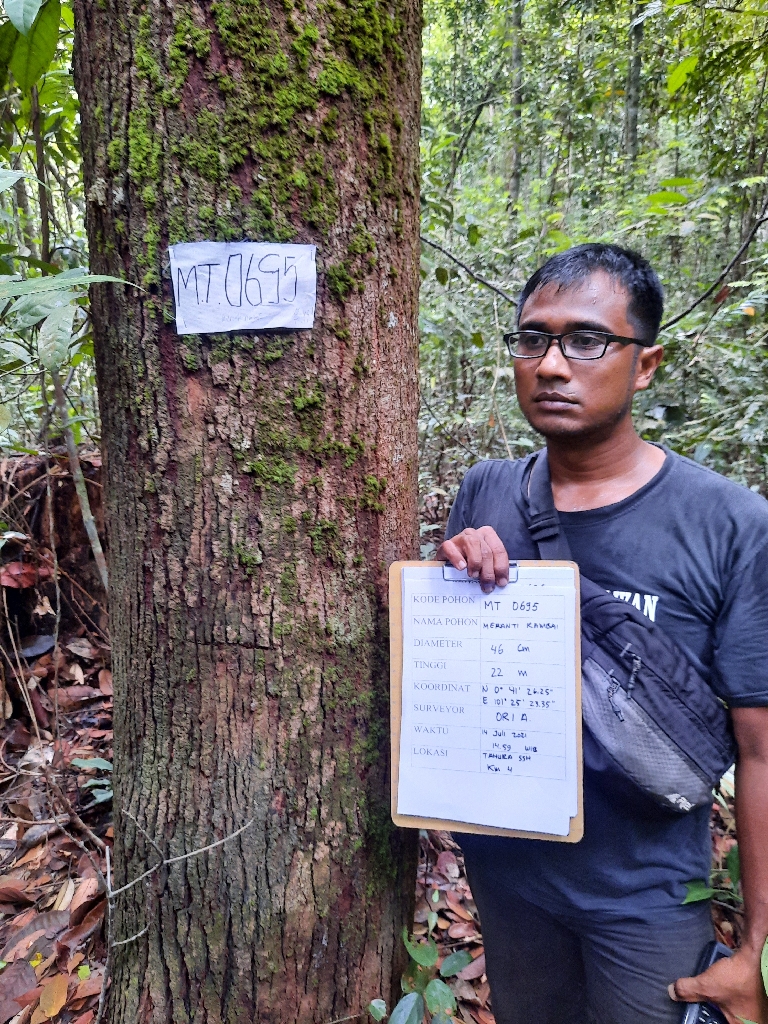 MT.0695
KODE POHON MT 0695
NAMA POHON MERANTI KAMBAI
DIAMETER 46 Cm
TINGGI 22 m
KOORDINAT N 0° 41' 26.25"
E 101° 25' 23.35"
SURVEYOR ORI A.
WAKTU 14 JULI 2021
14.59 WIB
LOKASI TAHURA SSH
KM 4